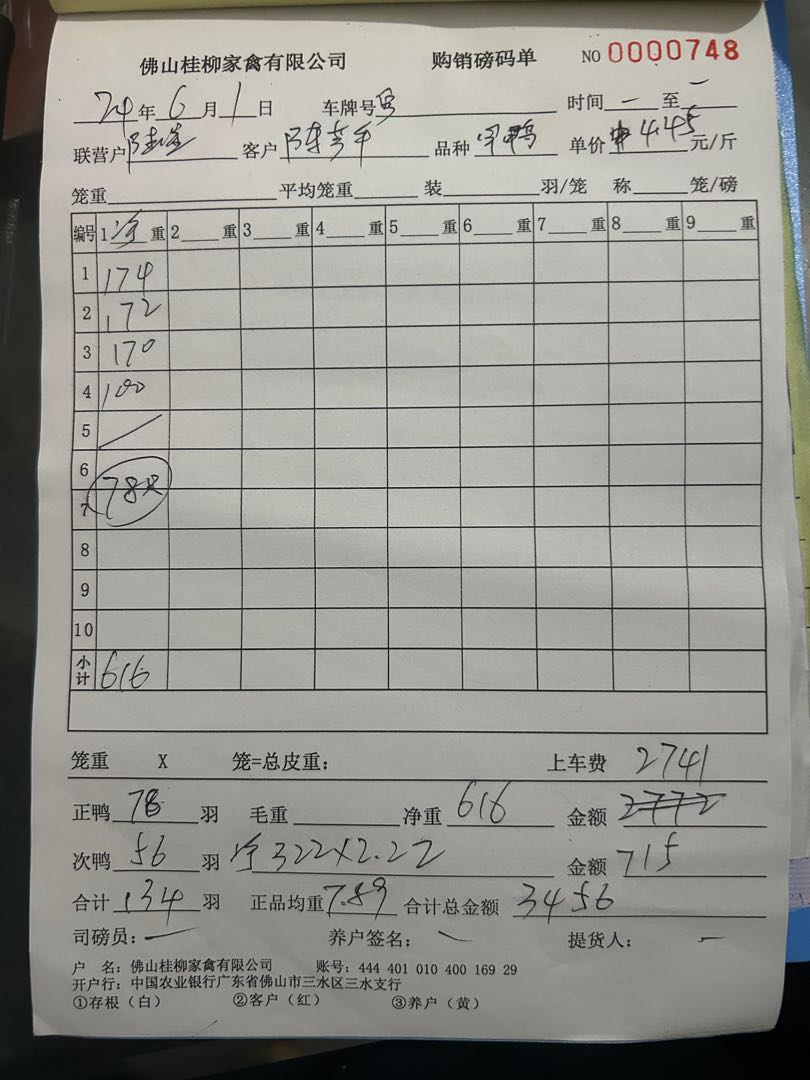 佛山桂柳家禽有限公司 购销磅码单 NO 0000748
24年6月1日 车牌号 时间 一 至 一
联营户 陈 客户 陈 品种 鸭 单价 4.45 元/斤
笼重 平均笼重 装 羽/笼 称 笼/磅
编号 1 净 重 2 重 3 重 4 重 5 重 6 重 7 重 8 重 9 重
1 174
2 172
3 170
4 100
5 /
6
7 78只
8
9
10
小计 616
笼重 X 笼=总皮重： 上车费 2741
正鸭 78 羽 毛重 净重 616 金额 2772
次鸭 56 羽 净322×2.22 金额 715
合计 134 羽 正品均重 7.89 合计总金额 3456
司磅员： 养户签名： 提货人：
户 名：佛山桂柳家禽有限公司 账号：444 401 010 400 169 29
开户行：中国农业银行广东省佛山市三水区三水支行
①存根（白） ②客户（红） ③养户（黄）